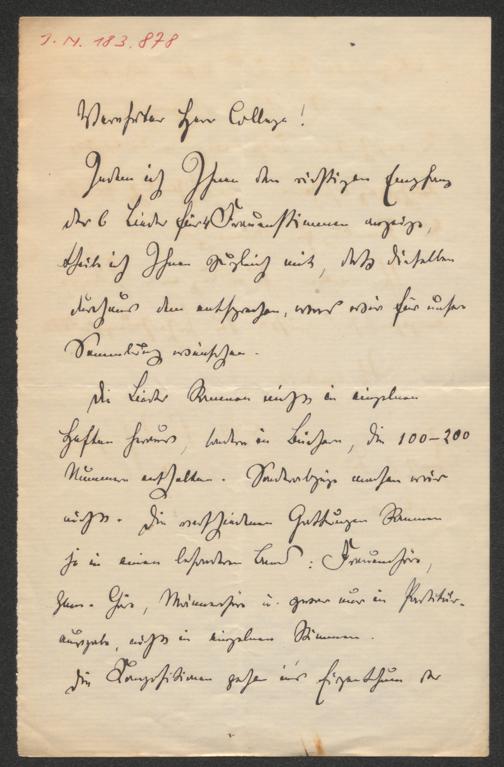 J. N. 183.878
Verehrter Herr College!
Indem ich Ihnen den richtigen Empfang
der 6 Lieder für 4 Frauenstimmen anzeige,
theile ich Ihnen zugleich mit, daß dieselben
durchaus dem entsprechen, was wir für unsre
Sammlung wünschen.
Die Lieder kommen nicht in einzelnen
Heften heraus, sondern in Büchern, die 100–200
Nummern enthalten. Sonderabzüge machen wir
nicht. Die verschiedenen Gattungen kommen
je in einen besonderen Band: Frauenchöre,
gem. Chöre, Männerchöre u. zwar nur in Partitur-
ausgabe, nicht in einzelnen Stimmen.
Die Kompositionen gehen in's Eigenthum der